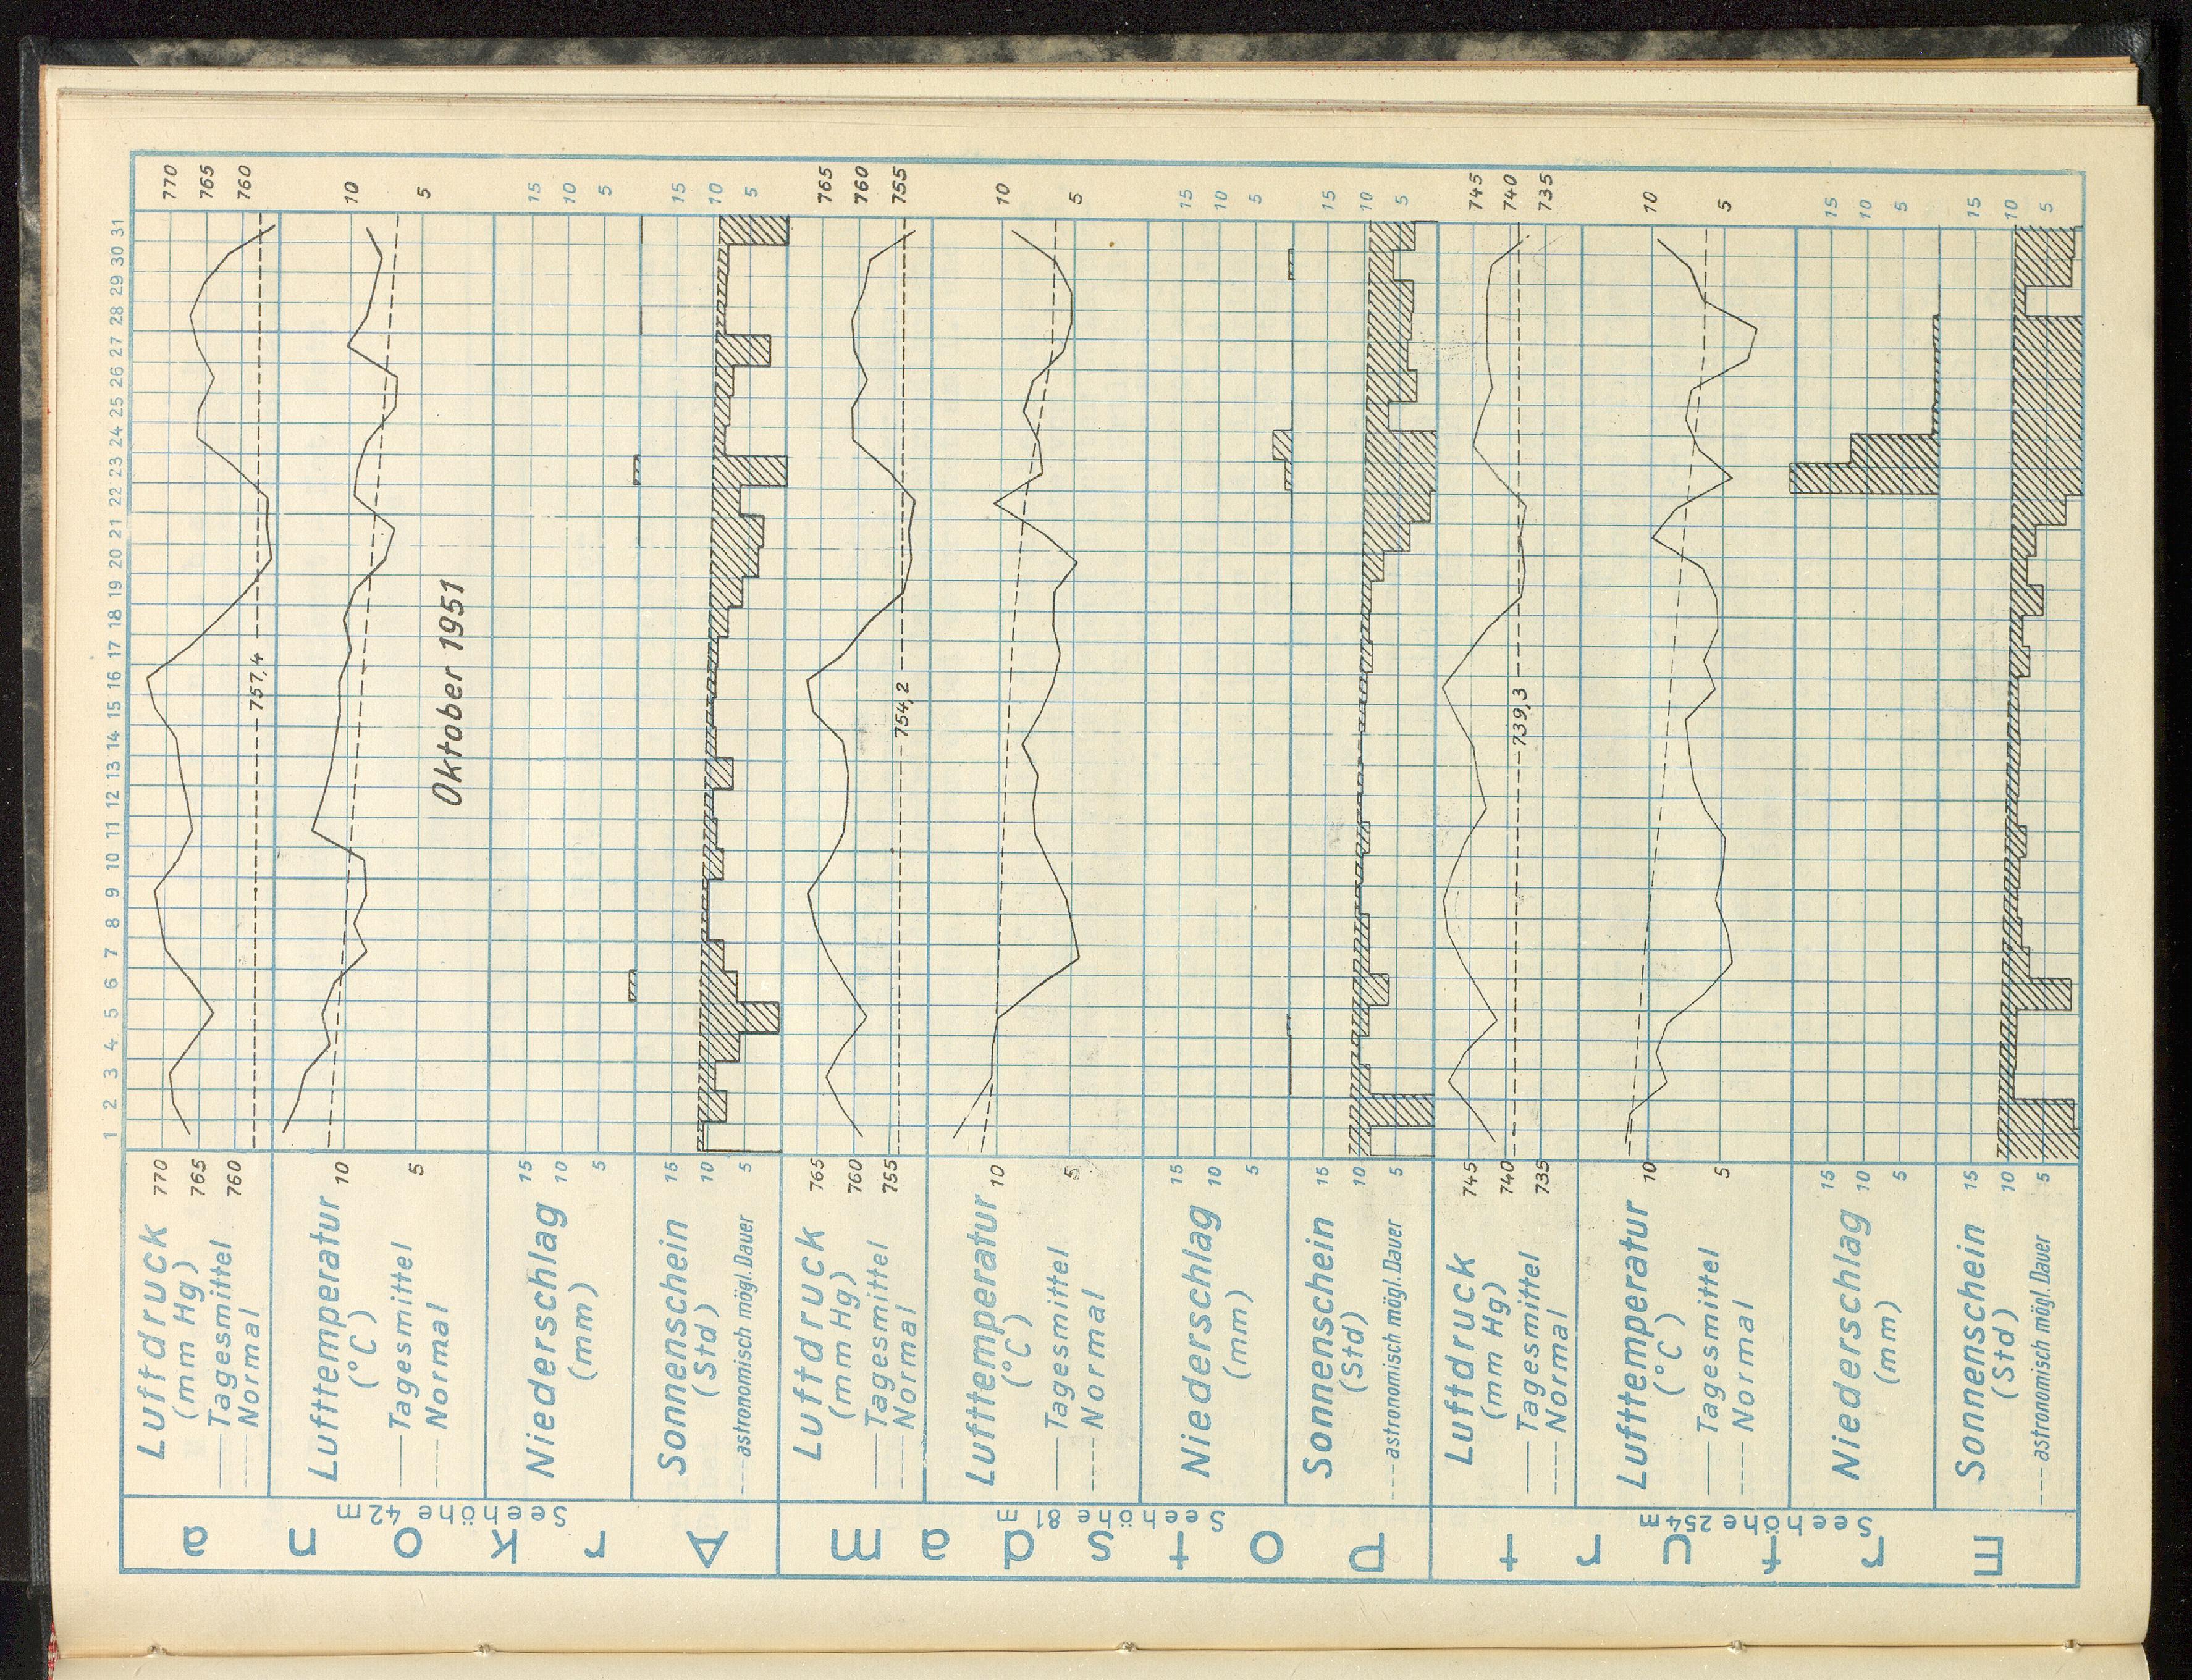 Oktober 1951
1 2 3 4 5 6 7 8 9 10 11 12 13 14 15 16 17 18 19 20 21 22 23 24 25 26 27 28 29 30 31
Arkona
Seehöhe 42 m
Luftdruck
(mm Hg)
Tagesmittel
Normal
770 770
765 765
760 760
757,4
Lufttemperatur
(°C)
Tagesmittel
Normal
10 10
5 5
Niederschlag
(mm)
15 15
10 10
5 5
Sonnenschein
(Std)
astronomisch mögl. Dauer
15 15
10 10
5 5
Potsdam
Seehöhe 81 m
Luftdruck
(mm Hg)
Tagesmittel
Normal
765 765
760 760
755 755
754,2
Lufttemperatur
(°C)
Tagesmittel
Normal
10 10
5 5
Niederschlag
(mm)
15 15
10 10
5 5
Sonnenschein
(Std)
astronomisch mögl. Dauer
15 15
10 10
5 5
Erfurt
Seehöhe 254 m
Luftdruck
(mm Hg)
Tagesmittel
Normal
745 745
740 740
735 735
739,3
Lufttemperatur
(°C)
Tagesmittel
Normal
10 10
5 5
Niederschlag
(mm)
15 15
10 10
5 5
Sonnenschein
(Std)
astronomisch mögl. Dauer
15 15
10 10
5 5